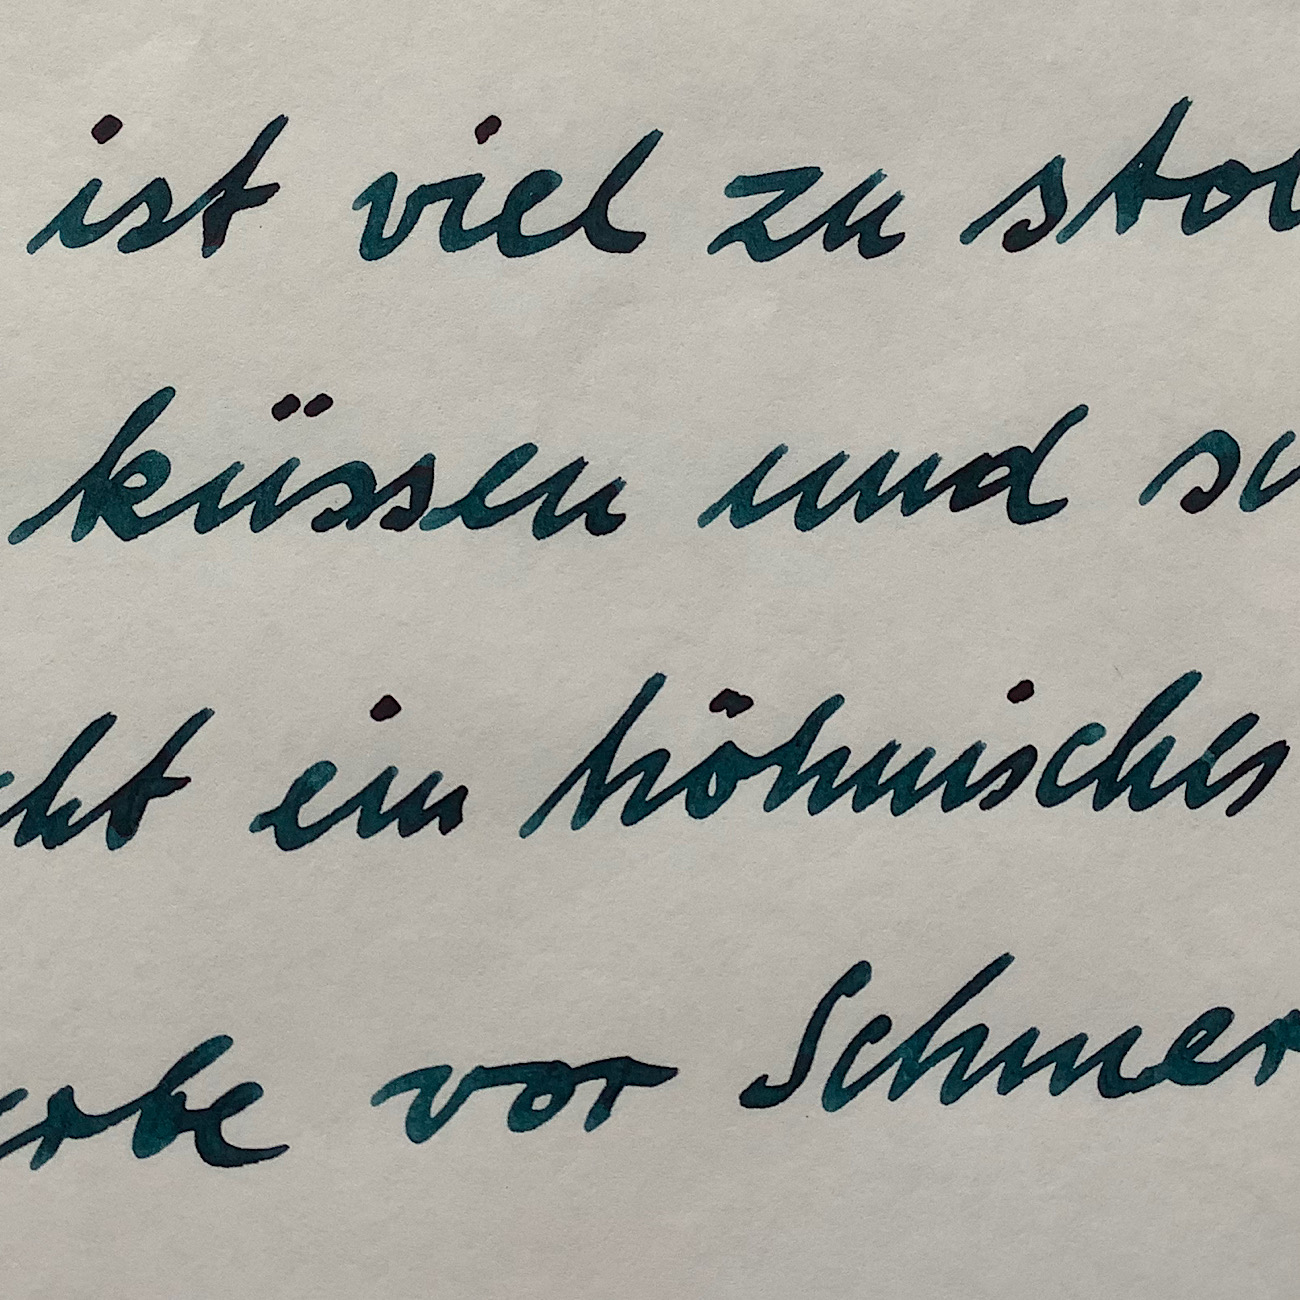 ist viel zu stol
küssen und
cht ein höhnisches
erbe vor Schmer